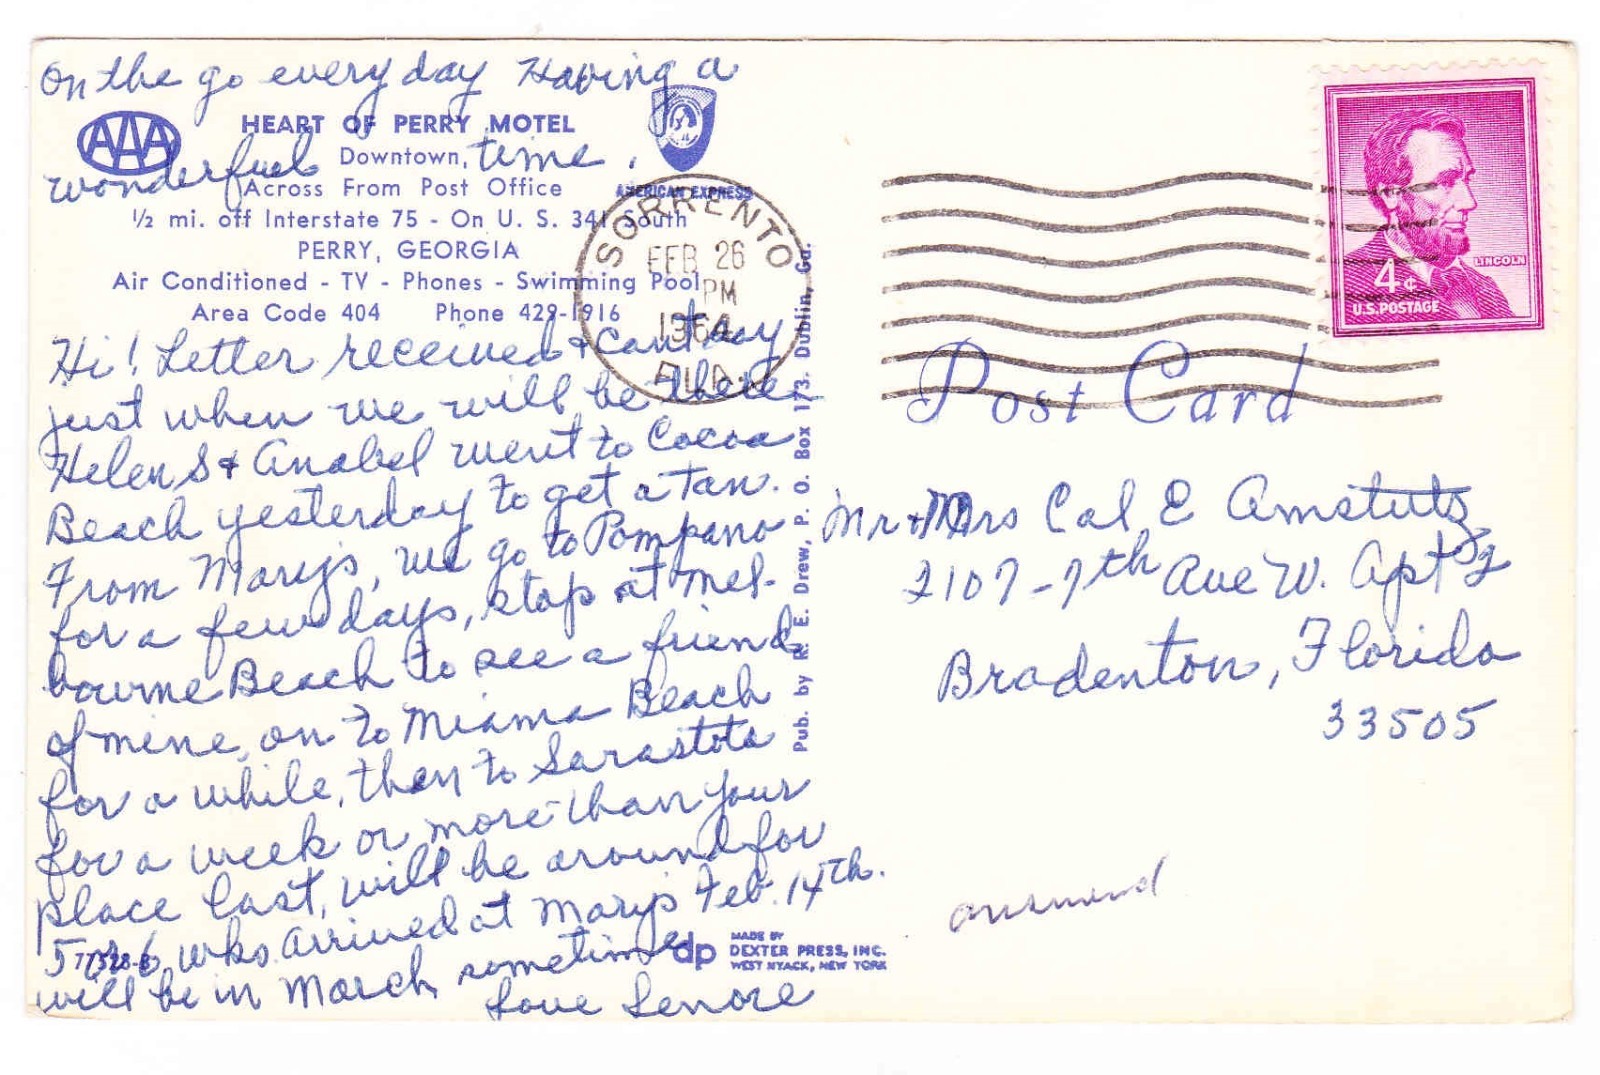 On the go every day Having a
AAA
HEART OF PERRY MOTEL
wonderful Downtown, time.
Across From Post Office
AMERICAN EXPRESS
1/2 mi. off Interstate 75 - On U. S. 341 South
PERRY, GEORGIA
Air Conditioned - TV - Phones - Swimming Pool
Area Code 404 Phone 429-1916
SORRENTO
FEB 26
PM
1964
FLA.
LINCOLN
4¢
U.S. POSTAGE
Post Card
Hi! Letter received & cant say
just when we will be there
Helen S & Anabel went to Cocoa
Beach yesterday to get a tan.
From Mary's, we go to Pompano
for a few days, stop at Mel-
bourne Beach to see a friend
of mine, on to Miama Beach
for a while, then to Sarastota
for a week or more than your
place last, will be around for
5 or 6, who arrived at Mary's Feb. 14th.
will be in March sometime
Love Lenore
Pub. by R. E. Drew, P. O. Box 173. Dublin, Ga.
Mr & Mrs Cal E Amstutz
2107-7th Ave W. Apt 2
Bradenton, Florida
33505
answered
77528-B
dp
MADE BY
DEXTER PRESS, INC.
WEST NYACK, NEW YORK